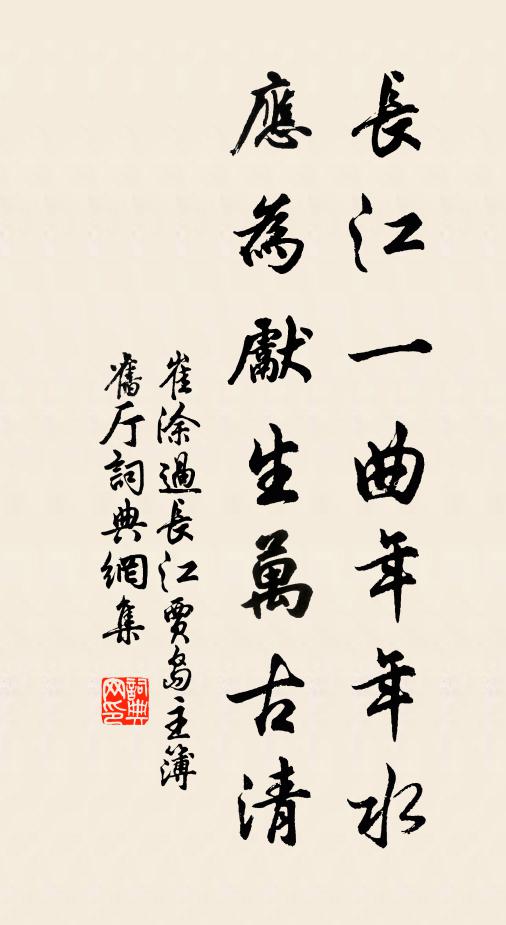 長江一曲年年水
應為獻生萬古清
崔涂過長江賈島主簿
舊厅詞典網集
詞典
网印